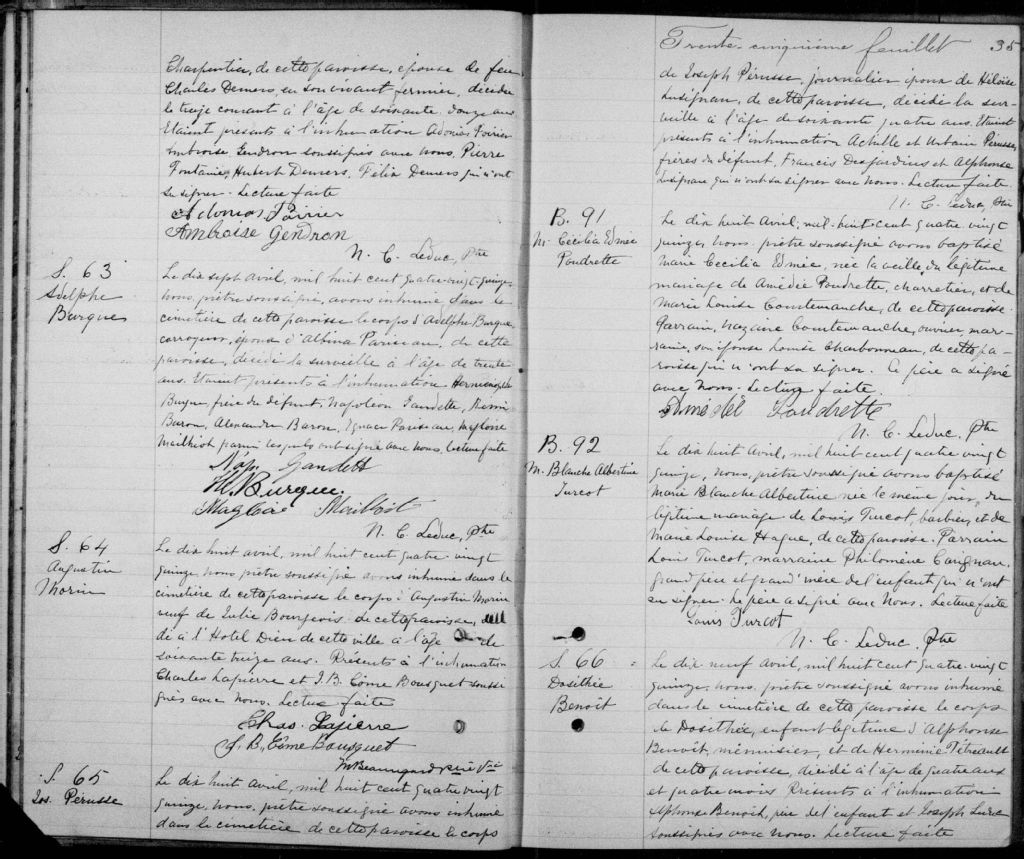 Charpentier, de cette paroisse, épouse de feu
Charles Demers, en son vivant fermier, décédée
le treize courant à l'âge de soixante-douze ans
Etaient présents à l'inhumation Adonias Poirier
Ambroise Gendron soussignés avec nous, Pierre
Fontaine, Hubert Demers, Félix Demers qui n'ont
su signer. Lecture faite
Adonias Poirier
Ambroise Gendron
N. C. Leduc, Ptre
S. 63
Adelphe
Burque
Le dix sept avril, mil huit cent quatre-vingt-quinze,
nous, prêtre soussigné, avons inhumé dans le
cimetière de cette paroisse le corps d'Adelphe Burque,
corroyeur, époux d'Albina Pariseau, de cette
paroisse, décédé la surveille à l'âge de trente
ans. Etaient présents à l'inhumation
Burque, frère du défunt, Napoléon Gaudette, Rémi
Baron, Alexandre Baron, Ignace Pariseau, Mgloire
Mailhiot parmi lesquels ont signé avec nous. Lecture faite
Nap. Gaudett
H. Burque
Magloire Mailhiot
N. C. Leduc, Ptre
S. 64
Augustin
Morin
Le dix huit avril, mil huit cent quatre-vingt
quinze, nous, prêtre soussigné avons inhumé dans le
cimetière de cette paroisse le corps d'Augustin Morin
veuf de Julie Bourgeois de cette paroisse, décé
dé à l'Hotel Dieu de cette ville à l'âge de
soixante treize ans. Présents à l'inhumation
Charles Lapierre et J. B. Côme Bousquet soussi
gnés avec nous. Lecture faite
Chas. Lapierre
J. B. Côme Bousquet
S. 65
Jos. Pérusse
Le dix huit avril, mil huit cent quatre vingt
quinze, nous, prêtre soussigné avons inhumé
dans le cimetière de cette paroisse le corps
Trente-cinquième feuillet 35
de Joseph Pérusse, journalier époux de Héloïse
Lusignan, de cette paroisse, décédé la sur-
veille à l'âge de soixante quatre ans. Etaient
présents à l'inhumation Achille et Urbain Pérusse,
frères du défunt, Francis Desjardins et Alphonse
Lusignan qui n'ont su signer avec nous. Lecture faite.
N. C. Leduc, Ptre
B. 91
M. Cécilia Edmée
Poudrette
Le dix huit Avril, mil-huit-cent quatre-vingt
quinze, nous, prêtre soussigné avons baptisé
Marie Cecilia Edmée, née la veille, du légitime
mariage de Amédée Poudrette, charretier, et de
Marie Louise Comtemanche, de cette paroisse.
Parrain, Nazaire Comtemanche, ouvrier, mar-
raine, son épouse Louise Charbonneau, de cette pa-
roisse qui n'ont su signer. Le père a signé
avec nous. Lecture faite
Amédé Poudrette
N. C. Leduc, Ptre
B. 92
M. Blanche Albertine
Turcot
Le dix huit Avril, mil huit cent quatre vingt
quinze, nous, prêtre soussigné avons baptisé
Marie Blanche Albertine née le même jour, du
légitime mariage de Louis Turcot, barbier, et de
Marie Louise Hague, de cette paroisse. Parrain
Louis Turcot, marraine Philomène Carignan,
grand père et grand'mère de l'enfant qui n'ont
su signer. Le père a signé avec nous. Lecture faite
Louis Turcot
N. C. Leduc, Ptre
S. 66
Dosithée
Benoit
Le dix neuf Avril, mil huit cent quatre-vingt
quinze, nous, prêtre soussigné avons inhumé
dans le cimetière de cette paroisse le corps
de Dosithée, enfant légitime d'Alphonse
Benoit, menuisier, et de Herminie Tétreault
de cette paroisse, décédé à l'âge de quatre ans
et quatre mois Présents à l'inhumation
Alphonse Benoit, père de l'enfant et Joseph
soussignés avec nous. Lecture faite